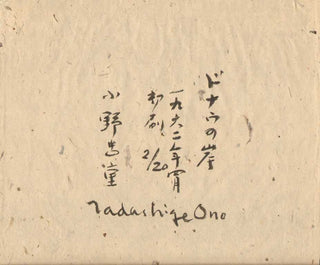 ドナウの岸
一九六二年
初刷 2/20
小野忠重
Tadashige Ono